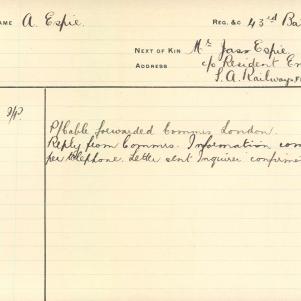 NAME A. Espie. REG. &C 43rd Ba
NEXT OF KIN Mr. Jass Espie.
ADDRESS c/o Resident En
S. A. Railways
P/Cable forwarded Commrs London.
Reply from Commrs. Information con
per telephone. Letter sent Inquirer confirm